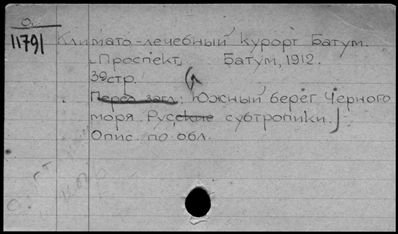 О.
11791
Климато-лечебный курорт Батум.
[Проспект]. Батум, 1912.
39стр.
Перед загл.: (Южный берег Черного
моря. Русские субтропики.)
Опис. по обл.